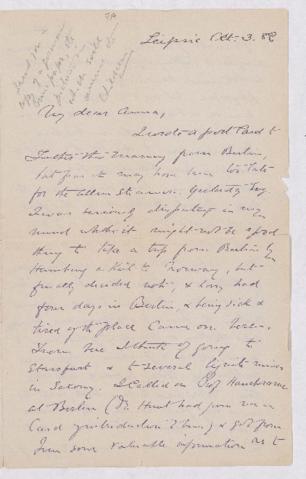 Send on a
copy of a
from
pictures
which will
amuse the
Children
Leipsic Oct. 3. 82
My dear Anna,
I wrote a post Card to
this morning from Berlin,
but fear it may have been too late
for the Steamer. Yesterday
I was seriously disputing in my
mind whether it might not be a good
thing to take a trip from Berlin by
Hamburg & Kiel to Norway, but
finally decided not, & having had
four days in Berlin, & being sick &
tired of the place came on here.
From here I think of going to
Stassfurt & to several lignite mines
in Saxony. I called on Prof Hauchecorne
at Berlin (Dr. Hunt had given me a
Card of introduction to him) & got from
him some valuable information as to